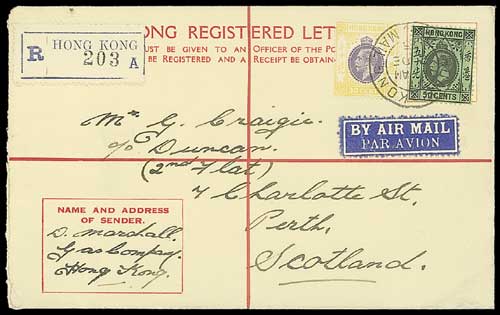 R HONG KONG
203 A
ONG REGISTERED LET
UST BE GIVEN TO AN OFFICER OF THE PO
BE REGISTERED AND A RECEIPT BE OBTAIN
HONG KONG
50 CENTS
BY AIR MAIL
PAR AVION
Mrs G. Craigie.
c/o Duncan.
(2nd Flat)
7 Charlotte St,
Perth,
Scotland.
NAME AND ADDRESS
OF SENDER.
D. Marshall.
Gas Company.
Hong Kong.